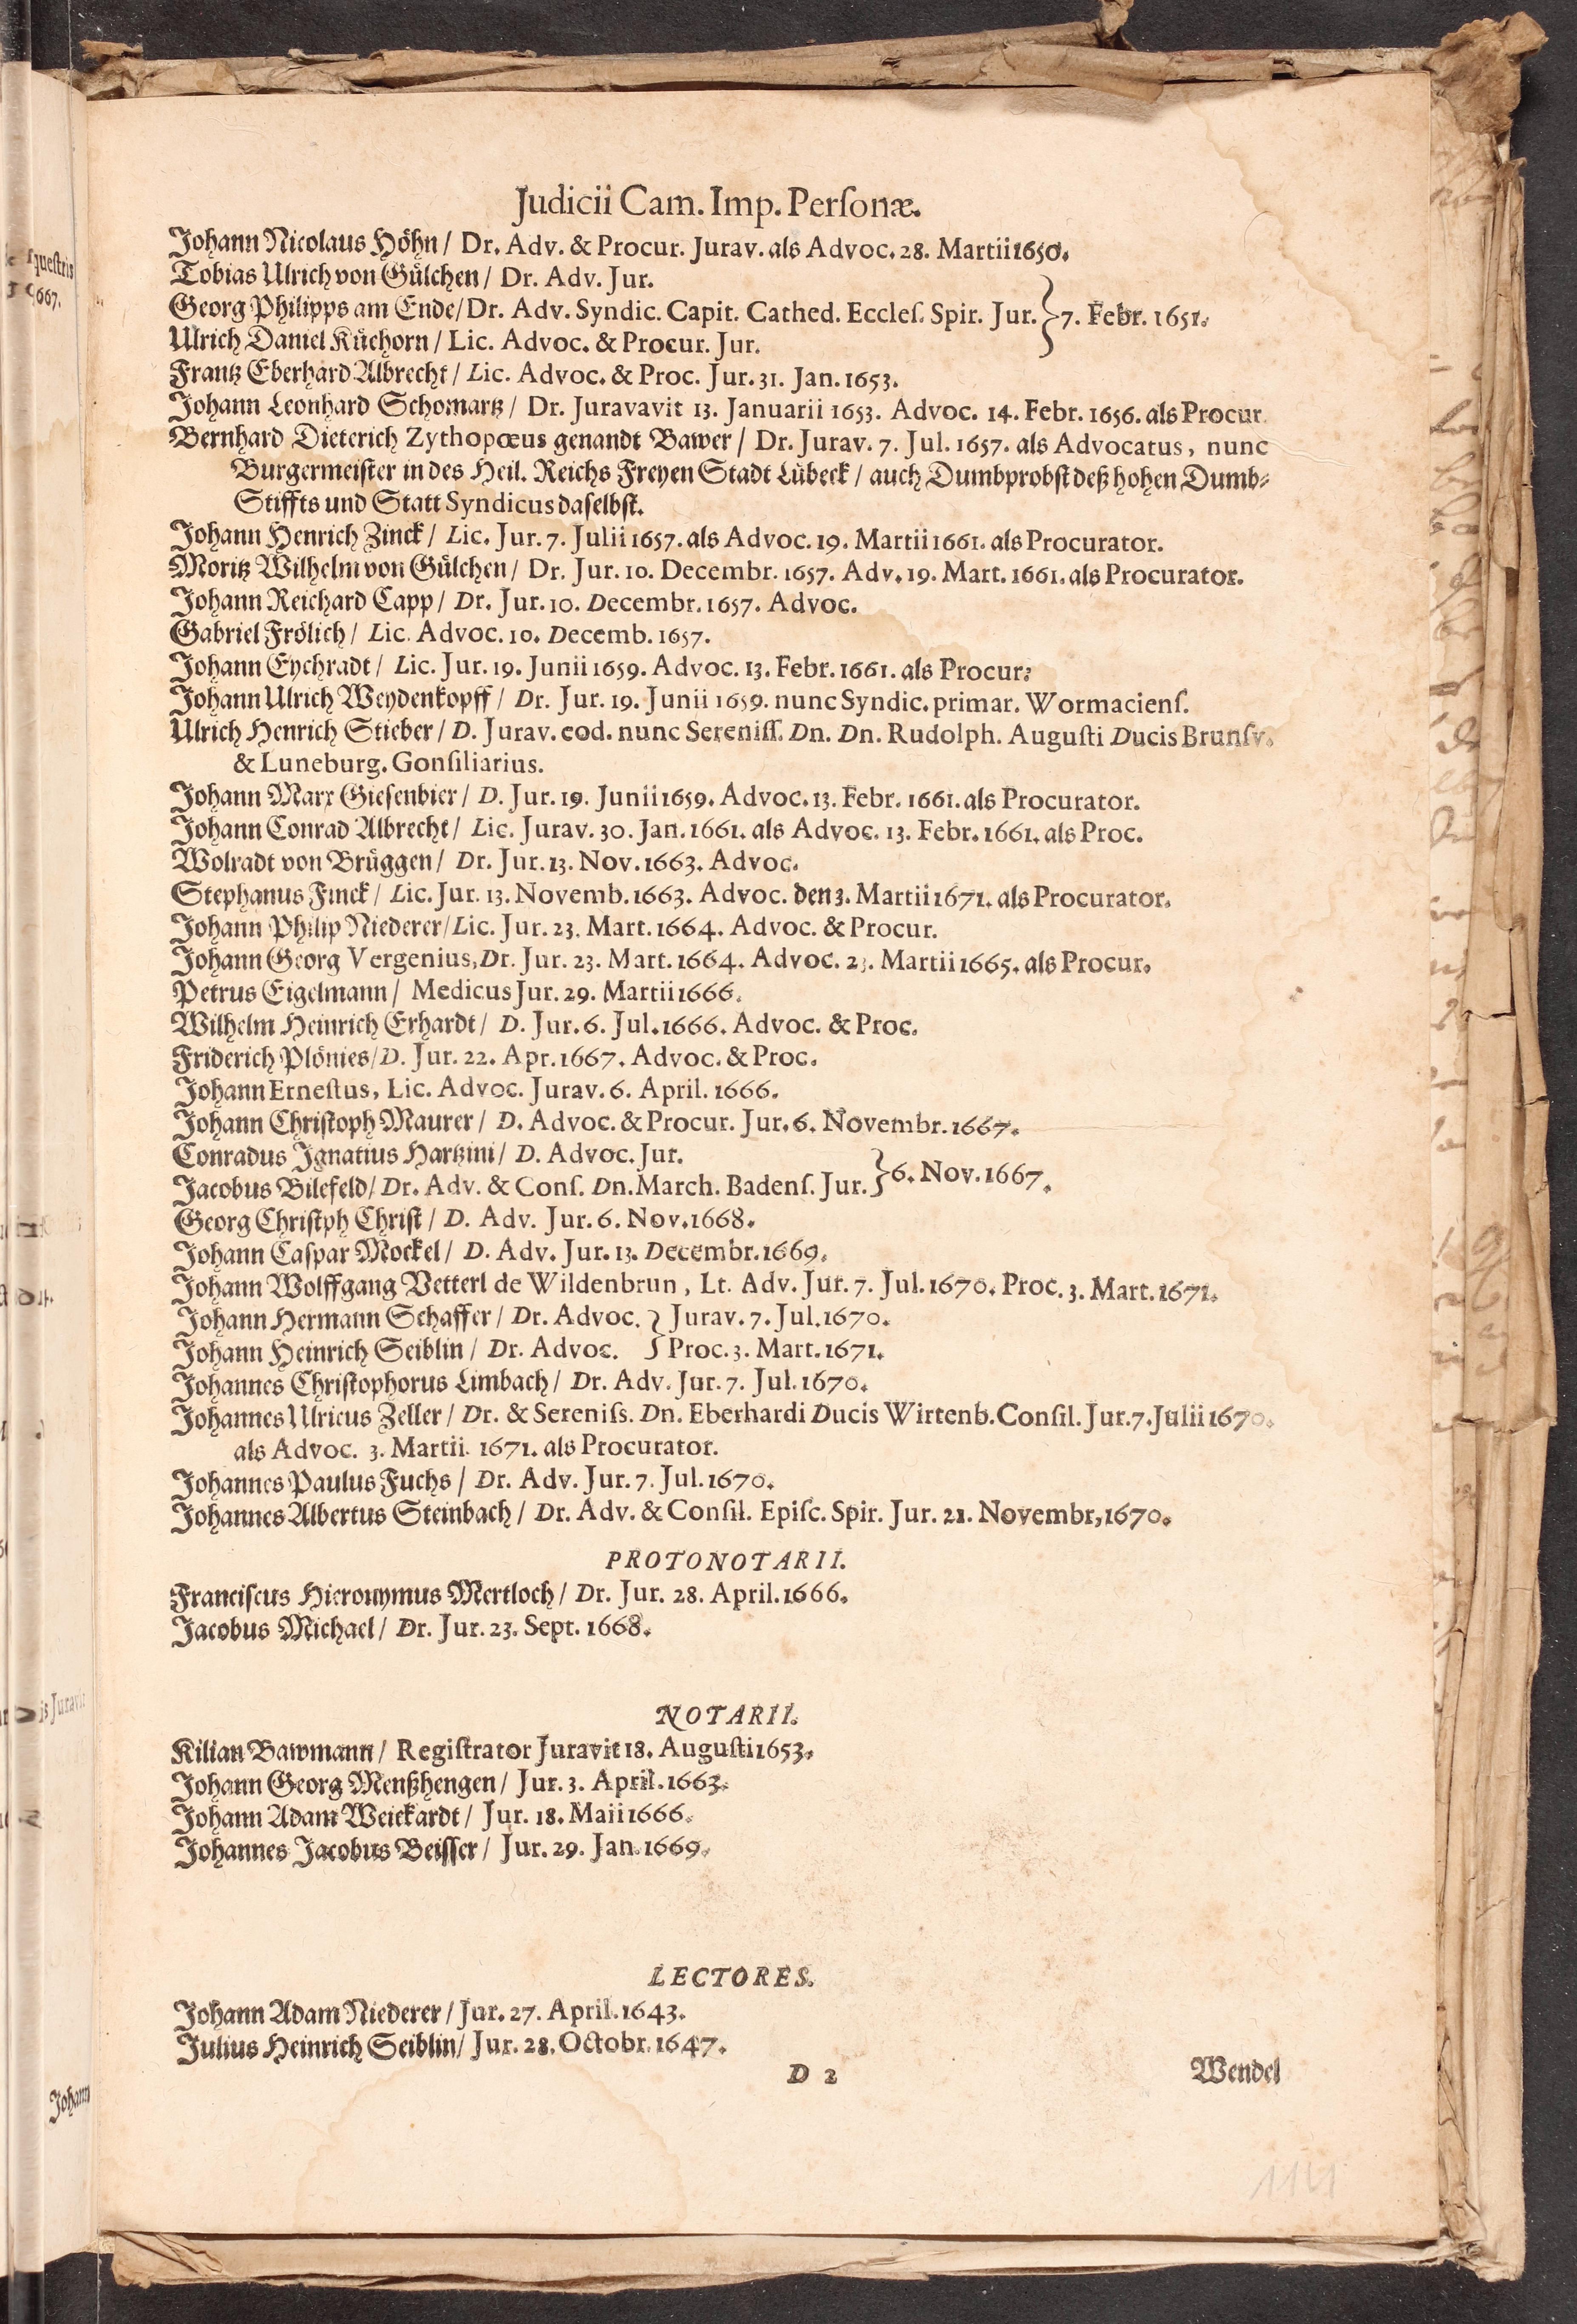 Judicii Cam. Imp. Perſonæ.
Johann Nicolaus Höhn / Dr. Adv. & Procur. Jurav. als Advoc. 28. Martii 1650.
Tobias Ulrich von Gülchen / Dr. Adv. Jur.
Georg Philipps am Ende / Dr. Adv. Syndic. Capit. Cathed. Eccleſ. Spir. Jur. } 7. Febr. 1651.
Ulrich Daniel Küehorn / Lic. Advoc. & Procur. Jur.
Frantz Eberhard Albrecht / Lic. Advoc. & Proc. Jur. 31. Jan. 1653.
Johann Leonhard Schomartz / Dr. Juravavit 13. Januarii 1653. Advoc. 14. Febr. 1656. als Procur.
Bernhard Dieterich Zythopœus genandt Bawer / Dr. Jurav. 7. Jul. 1657. als Advocatus, nunc
Burgermeister in des Heil. Reichs Freyen Stadt Lübeck / auch Dumbprobst deß hohen Dumb-
Stiffts und Statt Syndicus daselbst.
Johann Henrich Zinck / Lic. Jur. 7. Julii 1657. als Advoc. 19. Martii 1661. als Procurator.
Moritz Wilhelm von Gülchen / Dr. Jur. 10. Decembr. 1657. Adv. 19. Mart. 1661. als Procurator.
Johann Reichard Capp / Dr. Jur. 10. Decembr. 1657. Advoc.
Gabriel Frölich / Lic. Advoc. 10. Decemb. 1657.
Johann Eychradt / Lic. Jur. 19. Junii 1659. Advoc. 13. Febr. 1661. als Procur:
Johann Ulrich Weydenkopff / Dr. Jur. 19. Junii 1659. nunc Syndic. primar. Wormacienſ.
Ulrich Henrich Stieber / D. Jurav. eod. nunc Sereniſſ. Dn. Dn. Rudolph. Auguſti Ducis Brunſv.
& Luneburg. Gonſiliarius.
Johann Marx Giesenbier / D. Jur. 19. Junii 1659. Advoc. 13. Febr. 1661. als Procurator.
Johann Conrad Albrecht / Lic. Jurav. 30. Jan. 1661. als Advoc. 13. Febr. 1661. als Proc.
Wolradt von Brüggen / Dr. Jur. 13. Nov. 1663. Advoc.
Stephanus Finck / Lic. Jur. 13. Novemb. 1663. Advoc. den 3. Martii 1671. als Procurator.
Johann Philip Niederer / Lic. Jur. 23. Mart. 1664. Advoc. & Procur.
Johann Georg Vergenius, Dr. Jur. 23. Mart. 1664. Advoc. 23. Martii 1665. als Procur.
Petrus Eigelmann / Medicus Jur. 29. Martii 1666.
Wilhelm Heinrich Erhardt / D. Jur. 6. Jul. 1666. Advoc. & Proc.
Friderich Plönies / D. Jur. 22. Apr. 1667. Advoc. & Proc.
Johann Erneſtus, Lic. Advoc. Jurav. 6. April. 1666.
Johann Christoph Maurer / D. Advoc. & Procur. Jur. 6. Novembr. 1667.
Conradus Ignatius Hartzini / D. Advoc. Jur.
Jacobus Bilefeld / Dr. Adv. & Conſ. Dn. March. Badenſ. Jur. } 6. Nov. 1667.
Georg Christph Christ / D. Adv. Jur. 6. Nov. 1668.
Johann Caspar Mockel / D. Adv. Jur. 13. Decembr. 1669.
Johann Wolffgang Vetterl de Wildenbrun, Lt. Adv. Jur. 7. Jul. 1670. Proc. 3. Mart. 1671.
Johann Hermann Schaffer / Dr. Advoc. } Jurav. 7. Jul. 1670.
Johann Heinrich Seiblin / Dr. Advoc. } Proc. 3. Mart. 1671.
Johannes Christophorus Limbach / Dr. Adv. Jur. 7. Jul. 1670.
Johannes Ulricus Zeller / Dr. & Sereniſs. Dn. Eberhardi Ducis Wirtenb. Conſil. Jur. 7. Julii 1670.
als Advoc. 3. Martii. 1671. als Procurator.
Johannes Paulus Fuchs / Dr. Adv. Jur. 7. Jul. 1670.
Johannes Albertus Steinbach / Dr. Adv. & Conſil. Epiſc. Spir. Jur. 21. Novembr, 1670.
PROTONOTARII.
Franciscus Hieronymus Mertloch / Dr. Jur. 28. April. 1666.
Jacobus Michael / Dr. Jur. 23. Sept. 1668.
NOTARII.
Kilian Bawmann / Regiſtrator Juravit 18. Auguſti 1653.
Johann Georg Menßhengen / Jur. 3. April. 1663.
Johann Adam Weickardt / Jur. 18. Maii 1666.
Johannes Jacobus Beisser / Jur. 29. Jan. 1669.
LECTORES.
Johann Adam Niederer / Jur. 27. April. 1643.
Julius Heinrich Seiblin / Jur. 28. Octobr. 1647.
D 2
Wendel